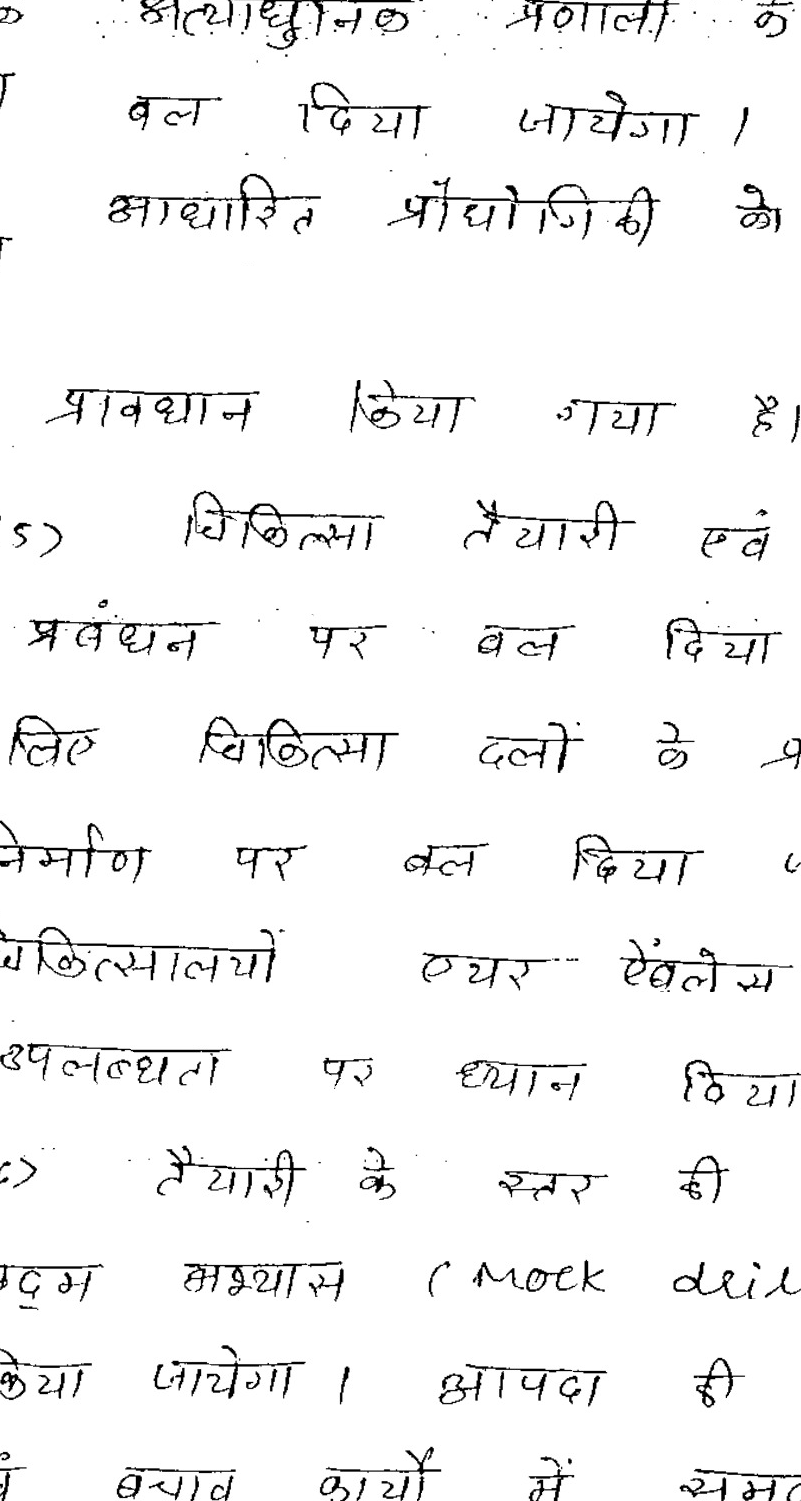 अत्याधुनिक प्रणाली के
बल दिया जायेगा ।
आधारित प्रौद्योगिकी को
प्रावधान किया गया है।
5) चिकित्सा तैयारी एवं
प्रबंधन पर बल दिया
लिए चिकित्सा दलों के प्र
नेर्माण पर बल दिया
चिकित्सालयों एयर ऐंबलेस
उपलब्धता पर ध्यान दिया
6) तैयारी के स्तर की
छद्म अभ्यास (Mock dril
किया जायेगा । आपदा की
बचाव कार्यों में सम